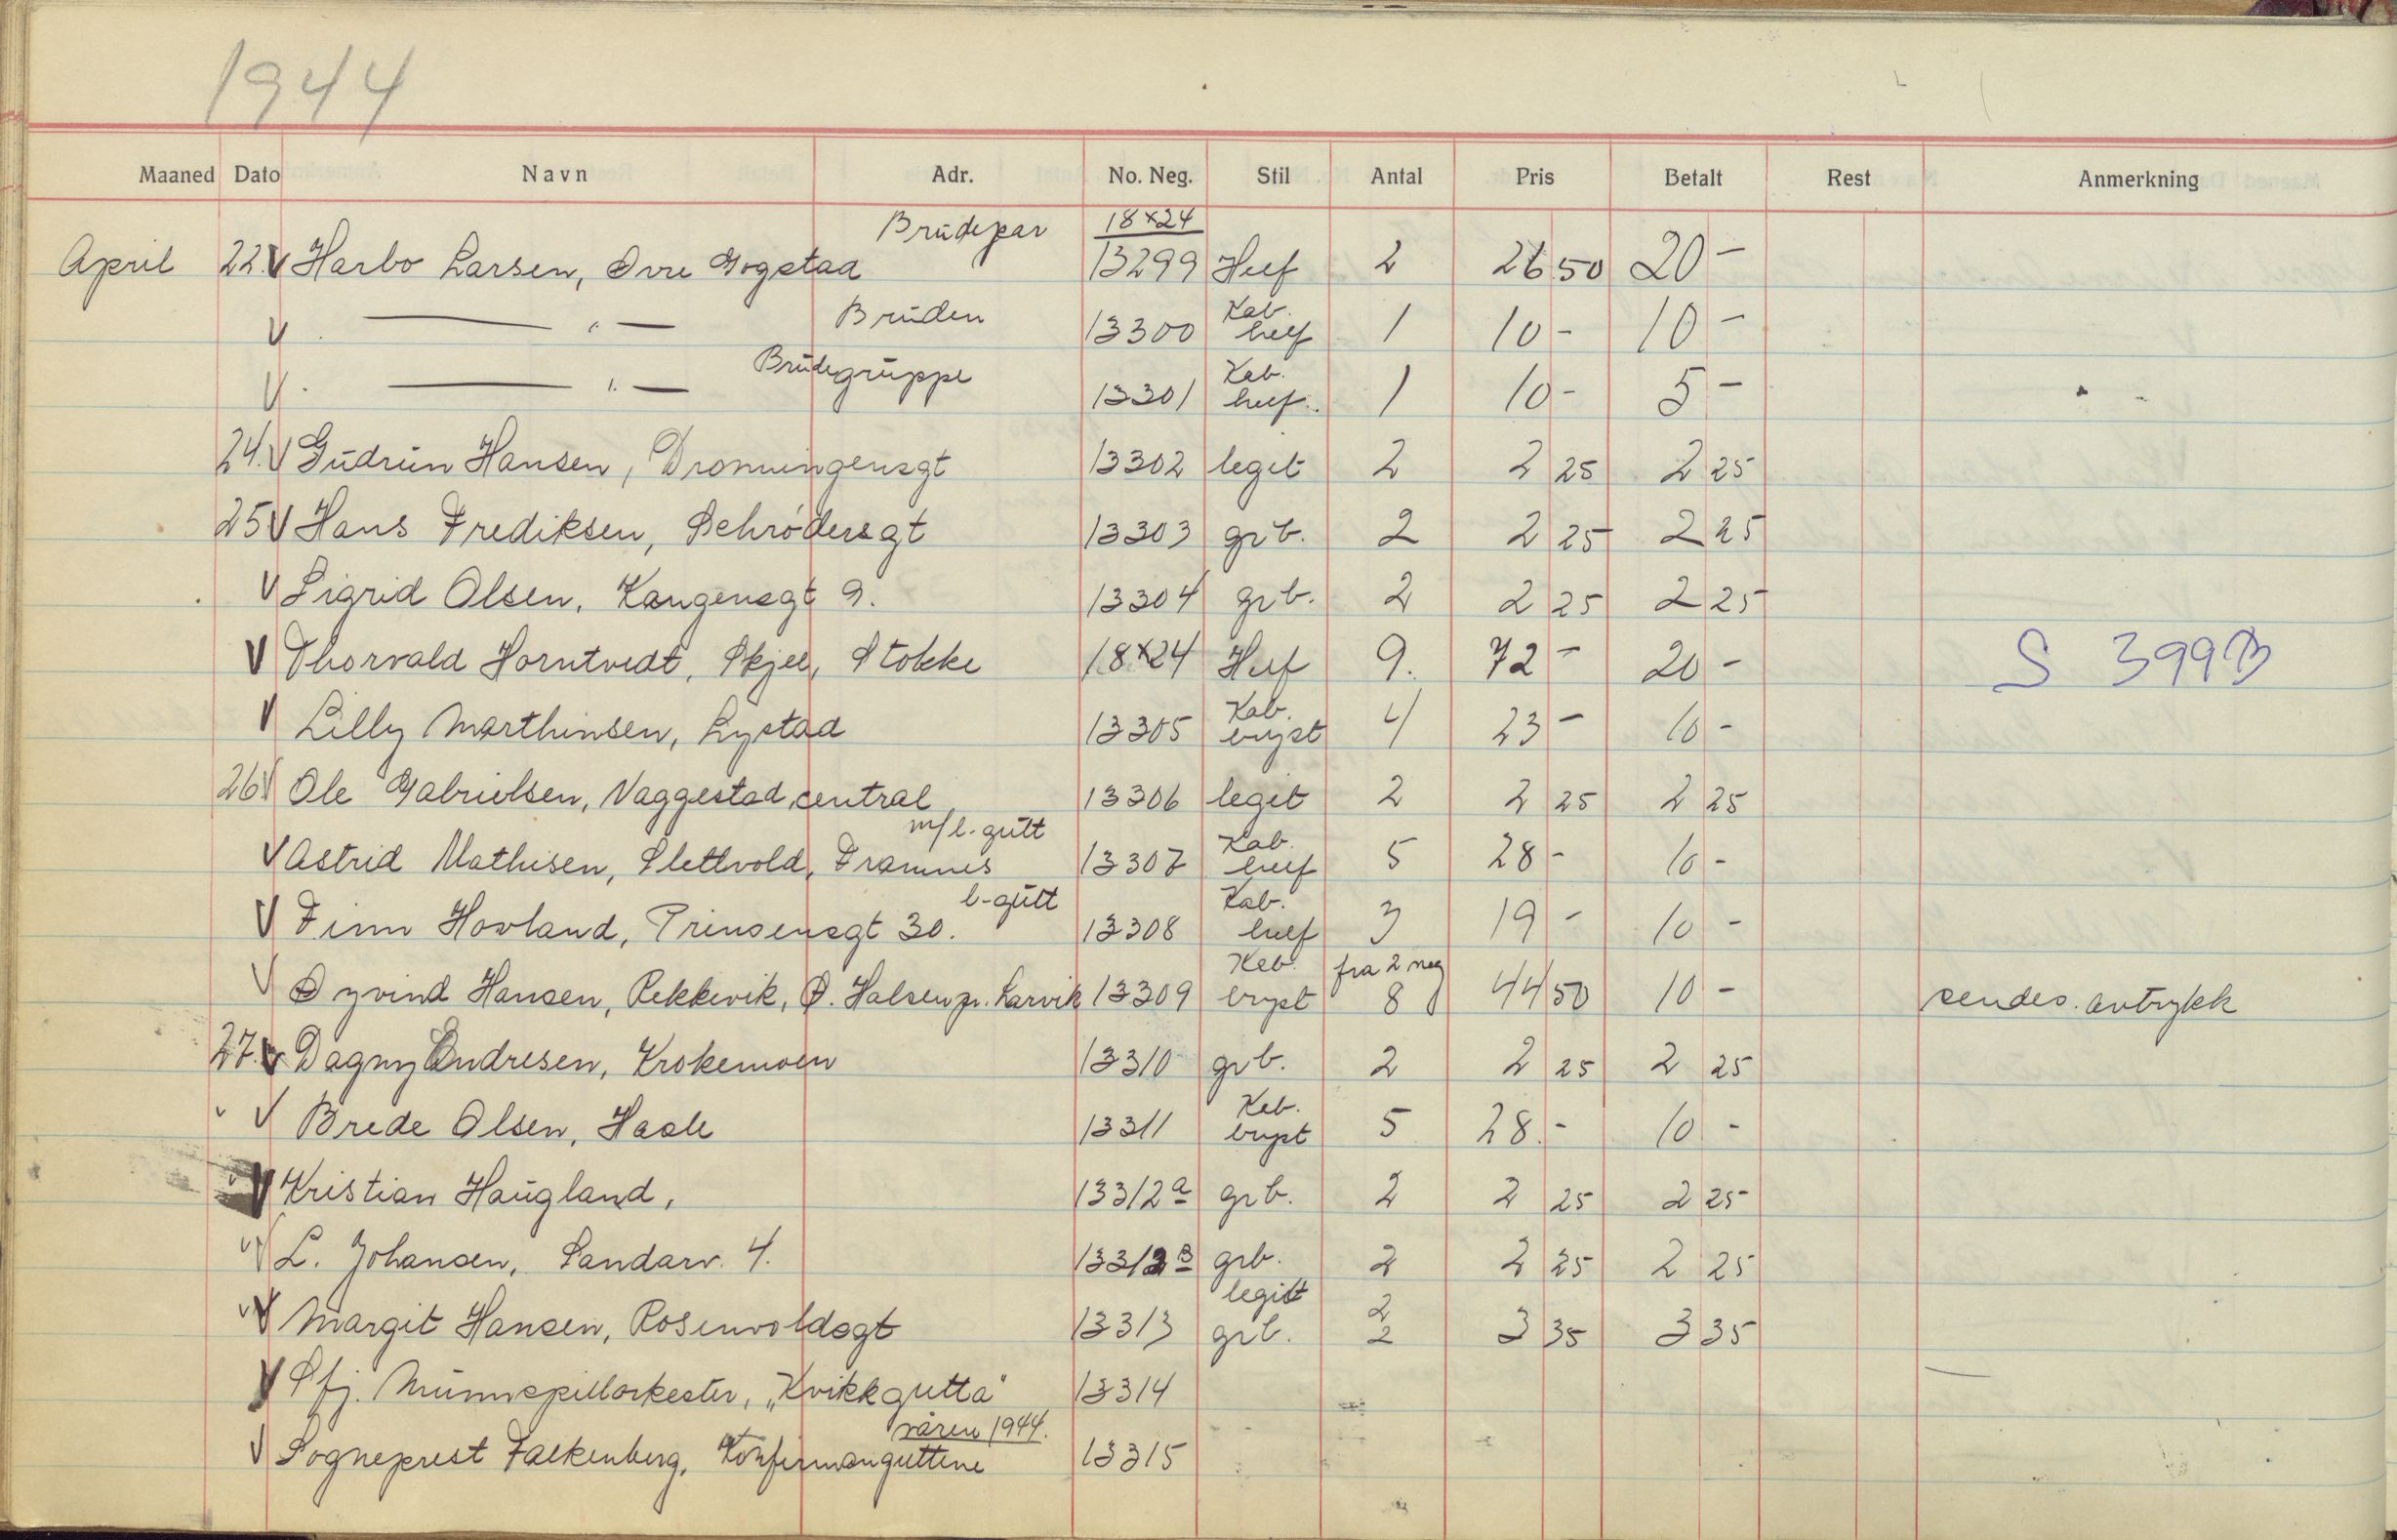 1944
Maaned Dato Navn Adr. No. Neg. Stil Antal Pris Betalt Rest Anmerkning
Brudepar 18x24
April 22. V Harbo Larsen, Øvre Gogstad 13299 Helf 2 26 50 20 -
V — " — Bruden 13300 Kab. helf 1 10 - 10 -
V. — " — Brudegruppe 13301 Kab. helf. 1 10 - 5 -
24. V Gudrun Hansen, Dronningensgt 13302 legit 2 2 25 2 25
25 V Hans Frediksen, Schrødersgt 13303 grb. 2 2 25 2 25
V Sigrid Olsen, Kongensgt 9. 13304 grb. 2 2 25 2 25
V Thorvald Horntvedt, Skjee, Stokke 18x24 Helf 9. 72 - 20 - S 399B
V Lilly Marthinsen, Lystad 13305 Kab. bryst 4 23 - 10 -
26 V Ole Gabrielsen, Vaggestad, central 13306 legit 2 2 25 2 25
m/l. gutt
V Astrid Mathisen, Slettvold, Framnes 13307 Kab. helf 5 28 - 10 -
l-gutt
V Finn Hovland, Prinsensgt 30. 13308 Kab. helf 3 19 - 10 -
V Øyvind Hansen, Rekkevik, Ø. Halsen pr. Larvik 13309 Kab. bryst fra 2 neg 8 44 50 10 - sendes. avtrykk
27. V Dagny Andresen, Krokemoen 13310 grb. 2 2 25 2 25
" V Brede Olsen, Hasle 13311 Kab. bryst 5 28. - 10 -
" V Kristian Haugland, 13312a grb. 2 2 25 2 25
" V L. Johansen, Sandarv. 4. 13312B grb. 2 2 25 2 25
" V Margit Hansen, Rosenvoldsgt 13313 legit grb. 2 2 3 35 3 35
V Sfj. Munnspillorkester, „Kvikkgutta" 13314
våren 1944.
V Sogneprest Falkenberg, Konfirmanguttene 13315